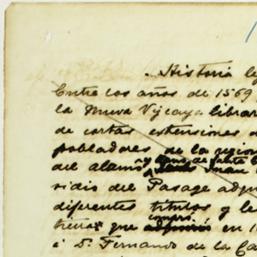 Historia le
Entre los años de 1569
la Nueva Vizcaya libra
de cortas estensiones
pobladores de la region
del alamo y
sidio del Pasage adqu
diferentes titulos y le
tierras que adquirió en 1
compr
é D. Fernando de la Ca